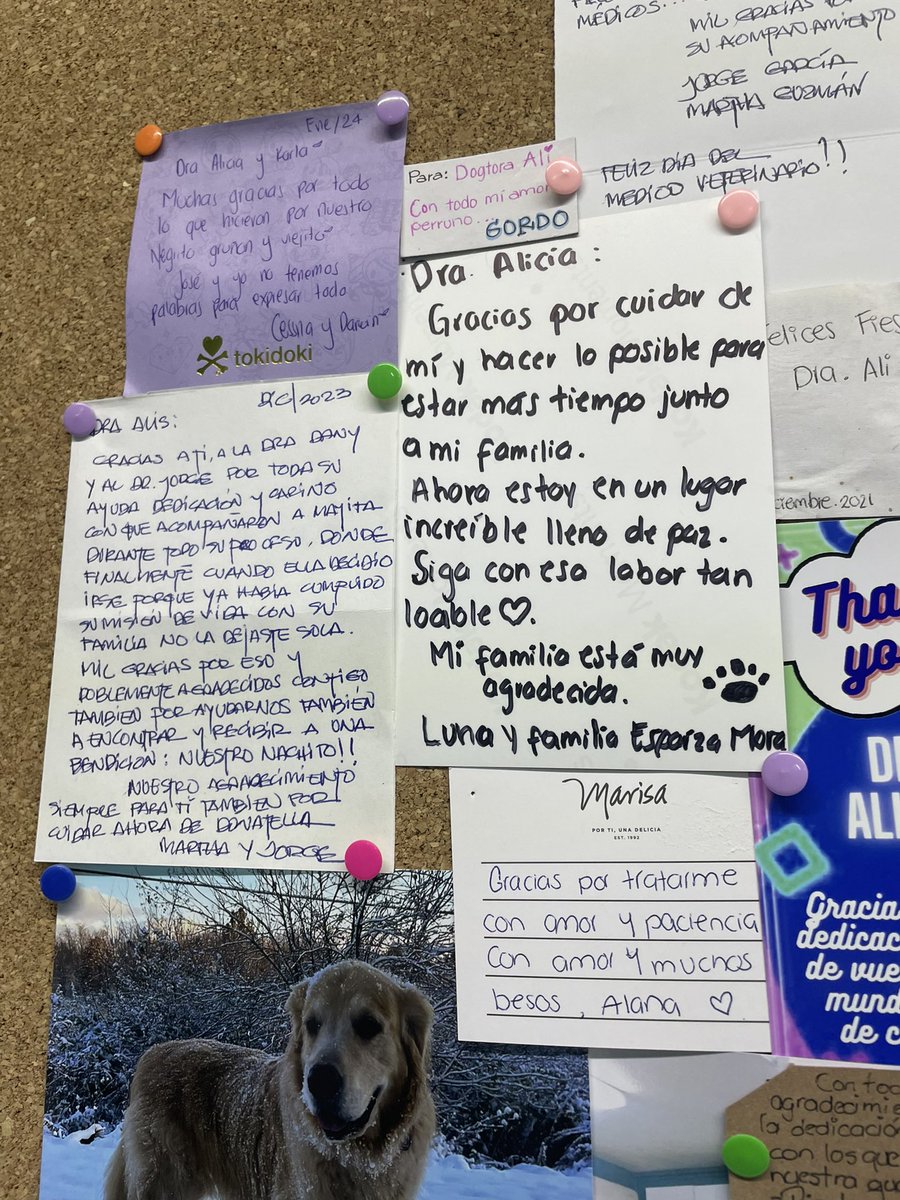 MÉDICOS...
MIL GRACIAS POR
SU ACOMPAÑAMIENTO
JORGE GARCÍA
MARTHA GUZMÁN
FELIZ DÍA DEL
MEDICO VETERINARIO!!
Ene/24
Dra Alicia y Karla
Muchas gracias por todo
lo que hicieron por nuestro
Negrito gruñon y viejito
José y yo no tenemos
palabras para expresar todo
Cessna y Darwin
tokidoki
Para: Dogtora Ali
Con todo mi amor
perruno...
GORDO
Dra. Alicia:
Gracias por cuidar de
mí y hacer lo posible para
estar más tiempo junto
a mi familia.
Ahora estoy en un lugar
increíble lleno de paz.
Siga con esa labor tan
loable♡.
Mi familia está muy
agradecida.
Luna y familia Esparza Mora
elices Fies
Dra. Ali
ciembre.2021
Dic/2023
DRA ALIS:
GRACIAS A TI, A LA DRA DANY
Y AL DR. JORGE POR TODA SU
AYUDA DEDICACIÓN Y CARIÑO
CON QUE ACOMPAÑARON A MAYITA
DURANTE TODO SU PROCESO, DONDE
FINALMENTE CUANDO ELLA DECIDIO
IRSE PORQUE YA HABÍA CUMPLIDO
SU MISIÓN DE VIDA CON SU
FAMILIA NO LA DEJASTE SOLA.
MIL GRACIAS POR ESO Y
DOBLEMENTE AGRADECIDOS CONTIGO
TAMBIÉN POR AYUDARNOS TAMBIÉN
A ENCONTRAR Y RECIBIR A UNA
BENDICION: NUESTRO NACHITO!!
NUESTRO AGRADECIMIENTO
SIEMPRE PARA TÍ TAMBIEN POR
CUIDAR AHORA DE DONATELLA
MARTHA Y JORGE
Marisa
POR TI, UNA DELICIA
EST. 1992
Gracias por tratarme
con amor y paciencia
Con amor y muchos
besos, Alana ♡
Tha
yo
D
ALI
Gracia
dedicac
de vue
mund
de c
Con tod
agradecimi
la dedicación
con los que
nuestra que